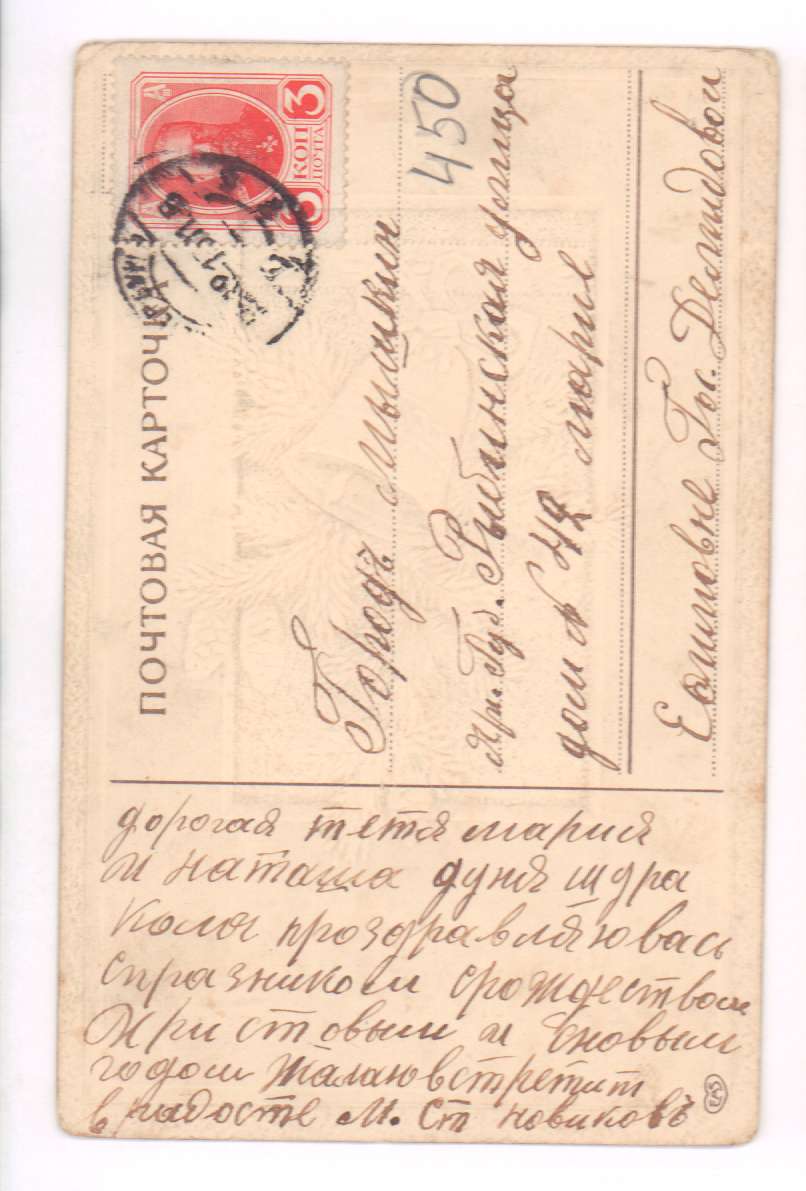 ПОЧТОВАЯ КАРТОЧКА
3 КОП
ПОЧТА 3
450
Городъ мышкин
Яри. Губ. Рыбинская улица
дом № 42 марие
Екимовне Гос. Демидовой
дорогая тетя мария
и наташа дуня шура
коля проздравляювась
спразником срождеством
Христовым и сновым
годом жалаювстретит
врадосте М. Ст новиковъ
EAS